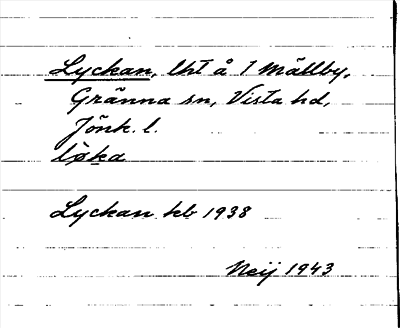 Lyckan, lht å 1 Mällby,
Gränna sn, Vista hd,
Jönk. l.
lø̀ka
Lyckan kb 1938
Neij 1943